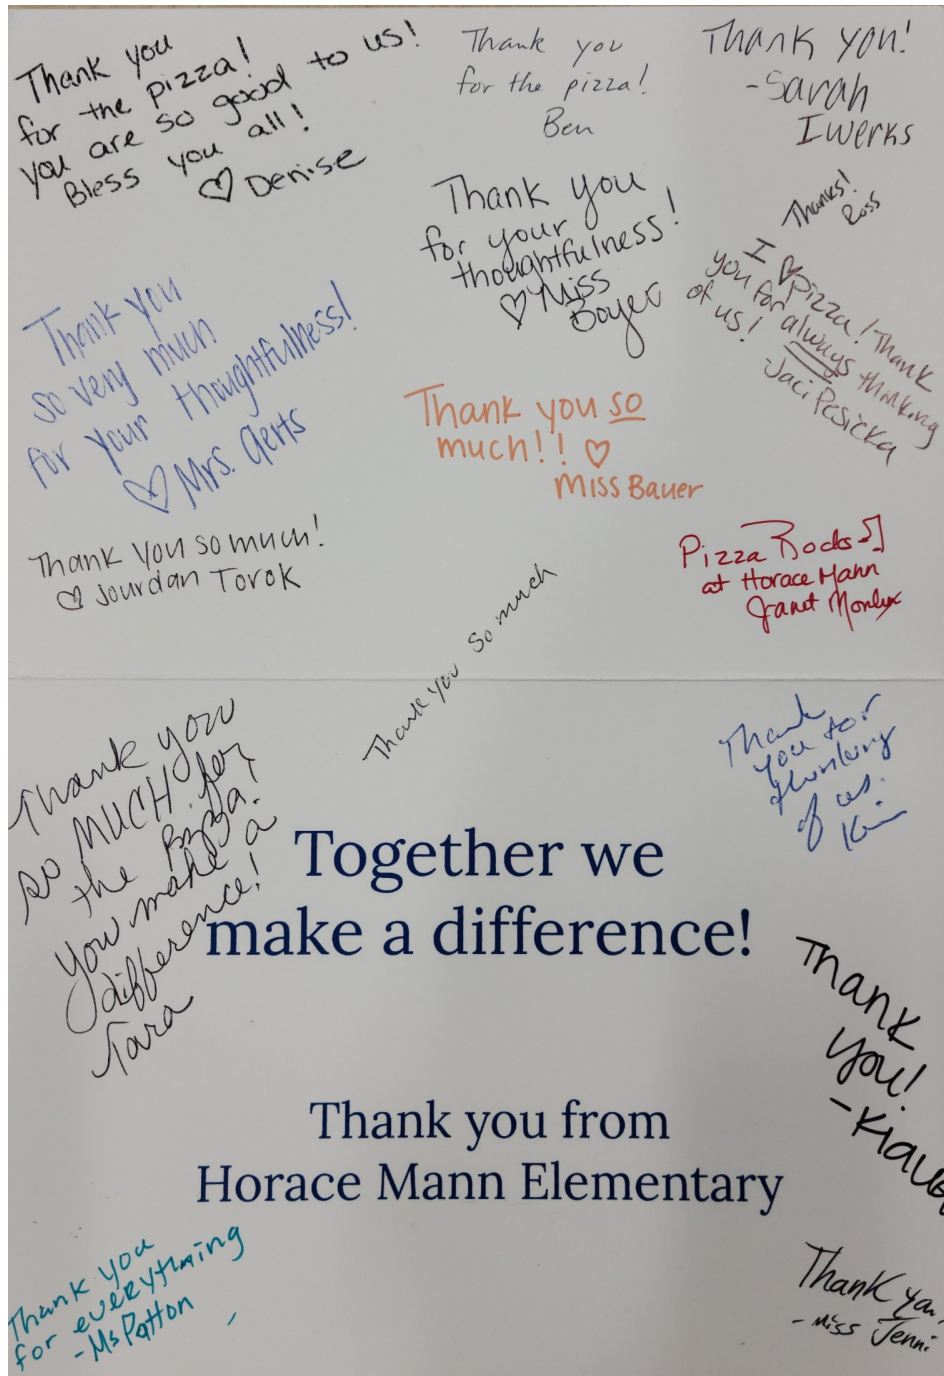 Thank you
for the pizza!
you are so good to us!
Bless you all!
♡ Denise
Thank you
for the pizza!
Ben
Thank you!
-Sarah
Iwerks
Thank you
for your
thoughtfulness!
♡ Miss
Boyer
Thanks!
Ross
I ♡ pizza! Thank
you for always thinking
of us!
-Jaci Pesicka
Thank you
so very much
for your thoughtfulness!
♡ Mrs. Aerts
Thank you so
much!! ♡
Miss Bauer
Thank you so much!
♡ Jourdan Torok
Pizza Rocks
at Horace Mann
Janet
Thank you so much
Thank you
so MUCH for
the pizza.
You make a
difference!
Tara
Thank
you for
thinking
of us.
Kim
Together we
make a difference!
Thank
you!
Thank you from
Horace Mann Elementary
Thank you
for everything
-Ms Patton
Thank you
- Miss Jenni